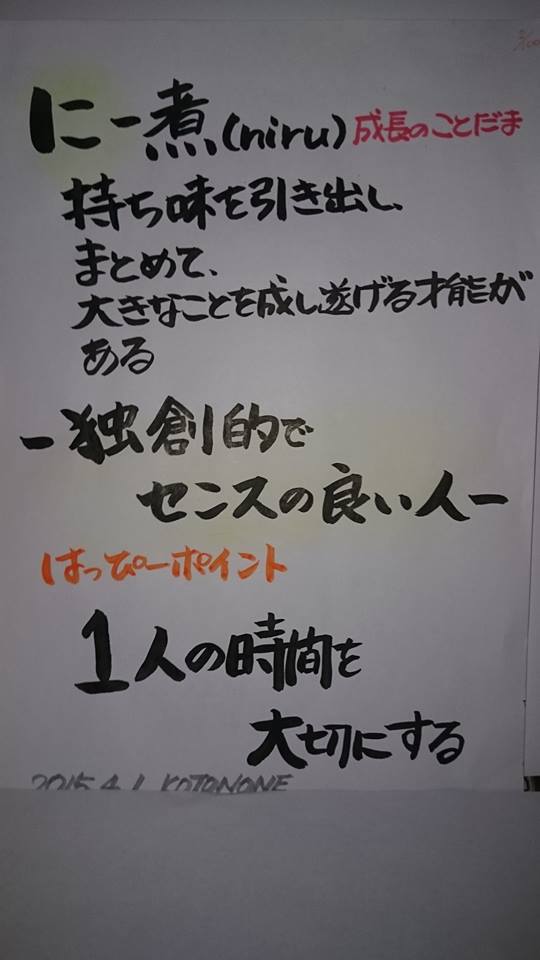 に－煮(niru)成長のことだま
持ち味を引き出し、
まとめて、
大きなことを成し遂げる才能が
ある
－独創的で
センスの良い人－
はっぴーポイント
1人の時間を
大切にする
2015.4.1 KOTONONE